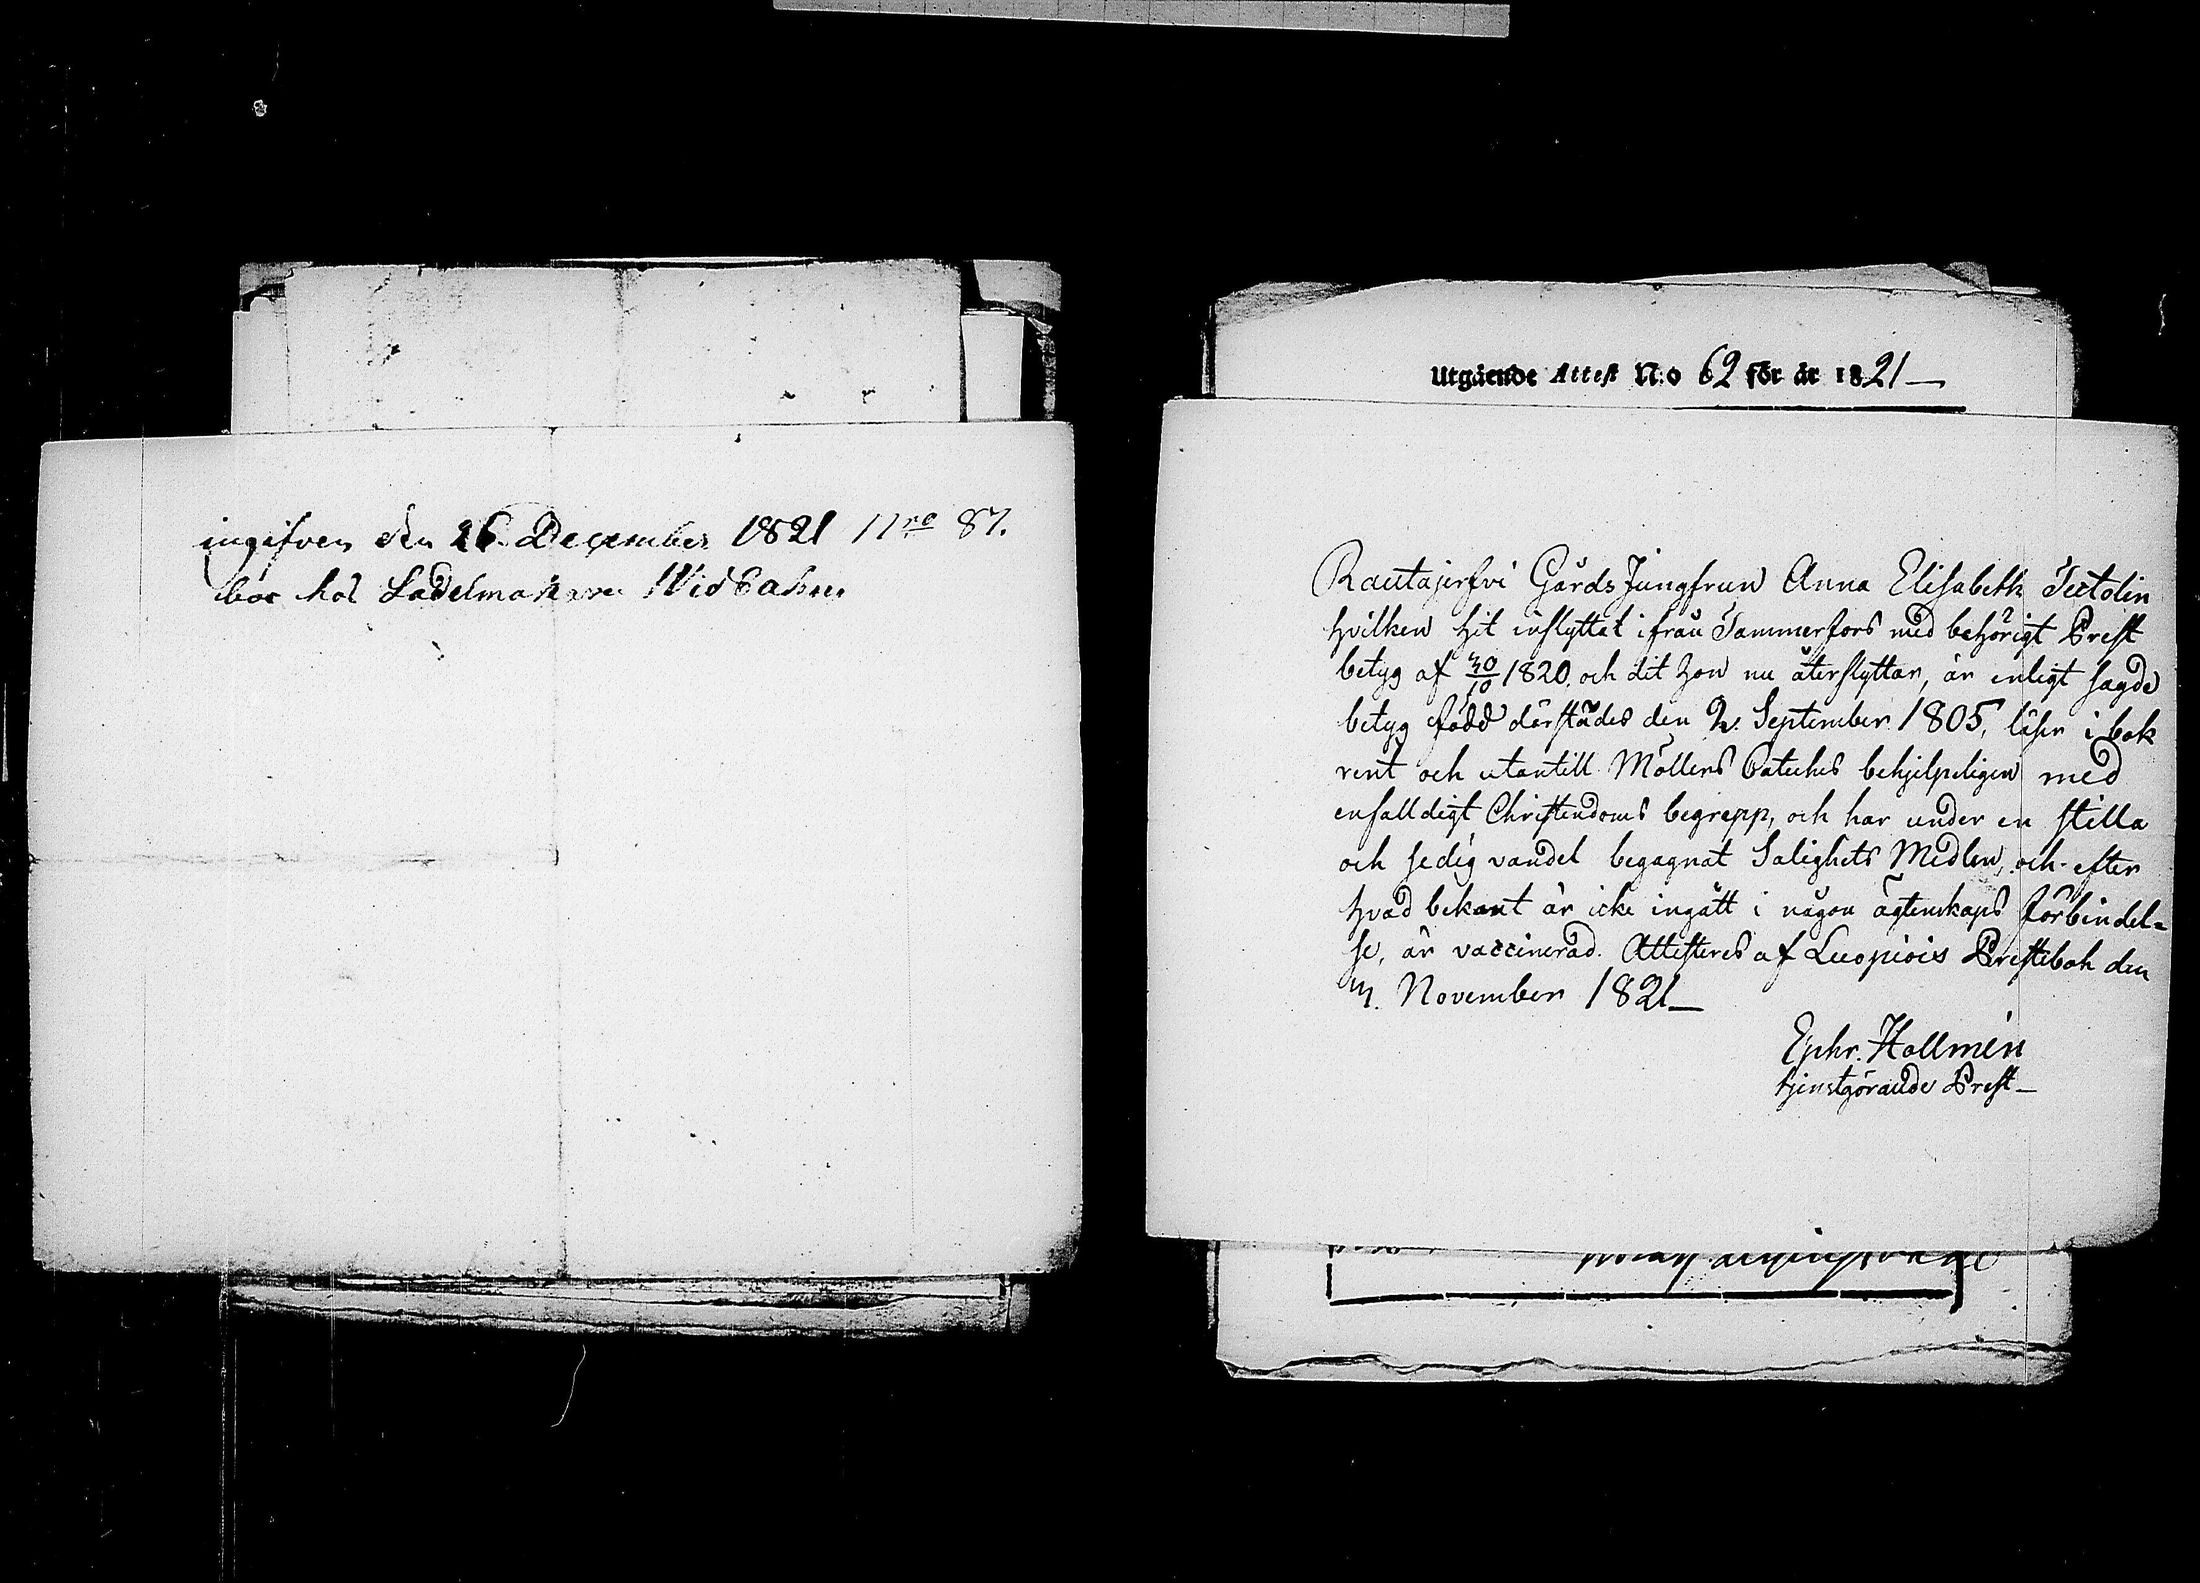 ingifven den 26 December 1821 Nro 87.
bor hos Sadelmakaren Widbahn.
Utgående Attest N:o 62 för år 1821 —
Rautajerfvi Gårds Jungfrun Anna Elisabeth Tectolin
hvilken hit inflyttat ifrån Tammerfors med behörigt Prest
betyg af 30/10 1820. och dit hon nu återflyttar, är enligt sagde
betyg född därstädes den 2. September 1805, läser i bok
rent och utantill Möllers Cateches behjelpeligen med
enfalldigt Christendoms begrepp, och har under en stilla
och sedig vandel begagnat Salighets Medlen, och efter
hvad bekant är icke ingått i någon ägtenskaps förbindel=
se, är vaccinerad. Attesteres af Luopiois Prestebok den
November 1821 —
Ephr. Hollmén
tjenstgörande Prest —